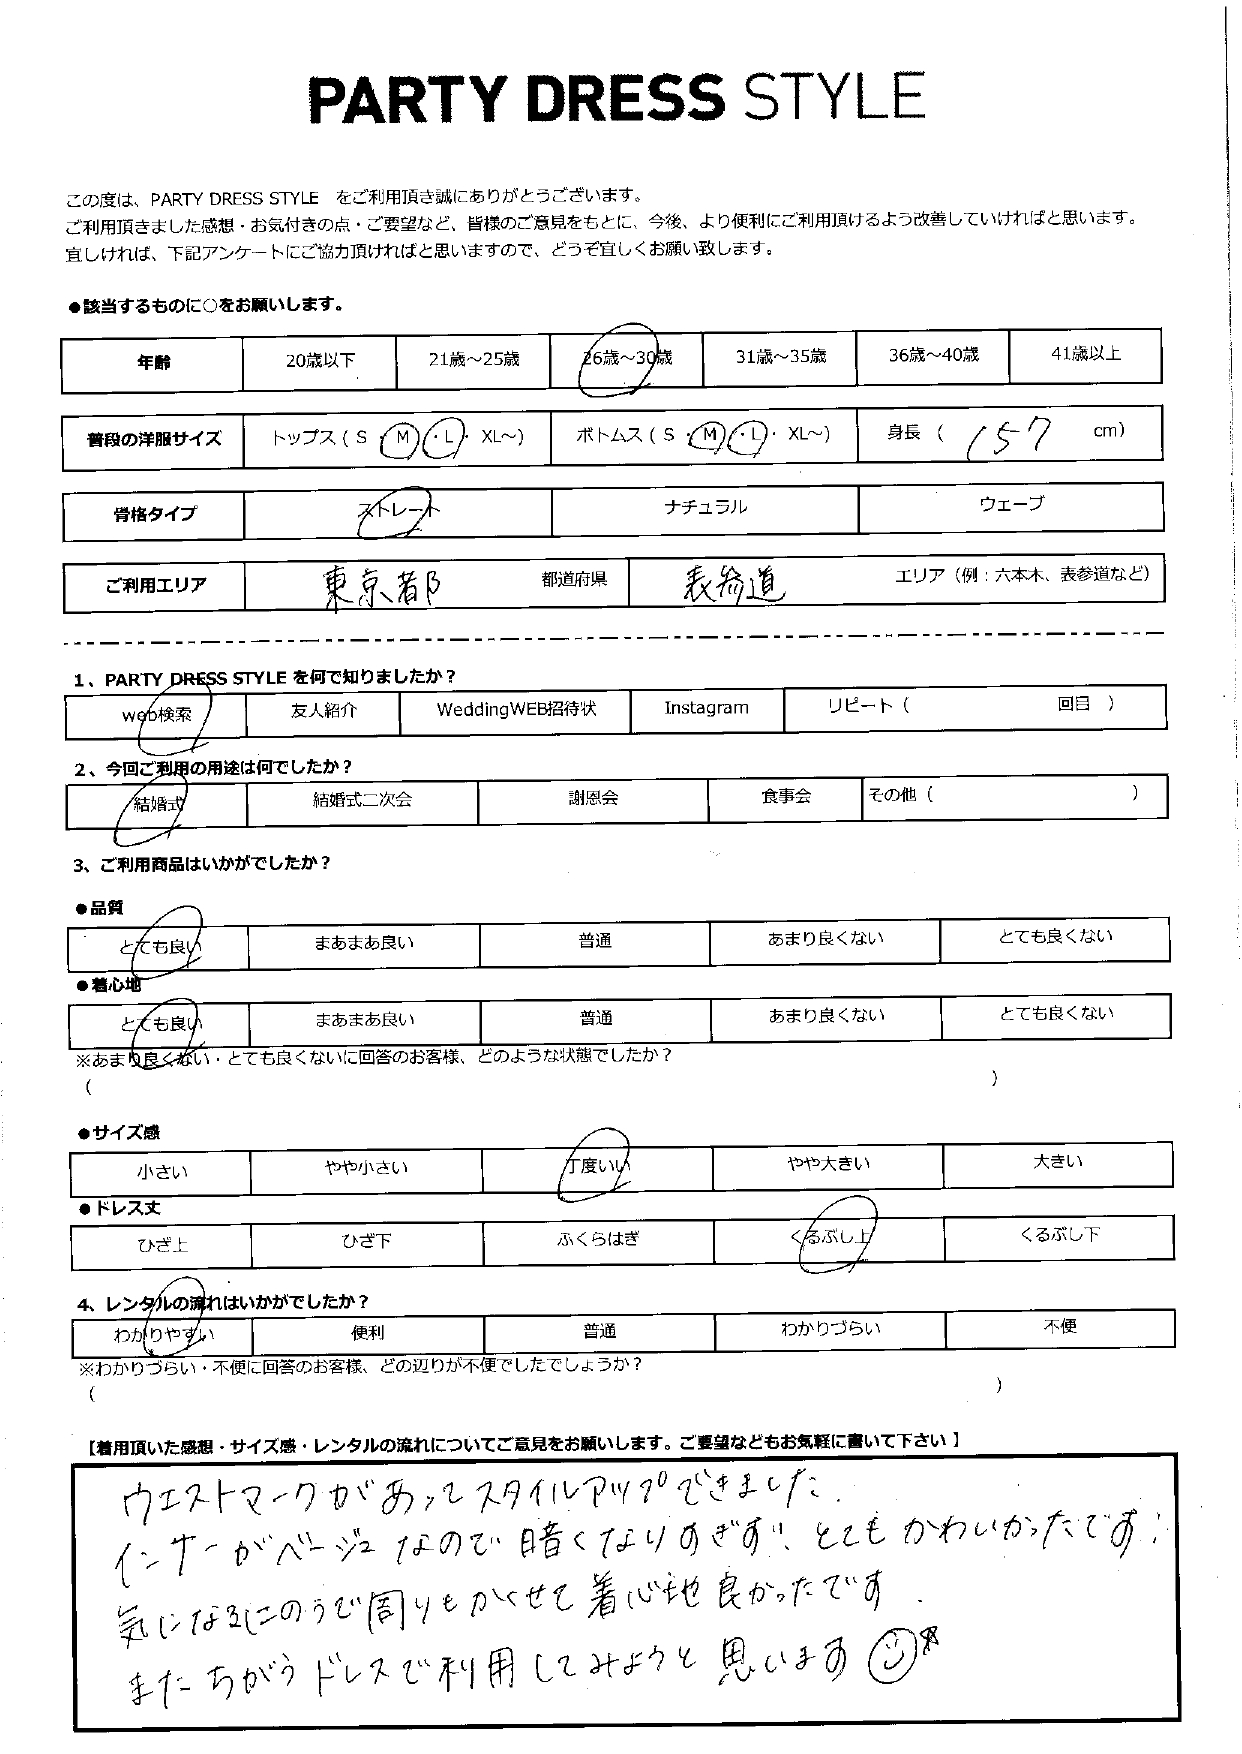 PARTY DRESS STYLE
この度は、PARTY DRESS STYLE をご利用頂き誠にありがとうございます。
ご利用頂きました感想・お気付きの点・ご要望など、皆様のご意見をもとに、今後、より便利にご利用頂けるよう改善していければと思います。
宜しければ、下記アンケートにご協力頂ければと思いますので、どうぞ宜しくお願い致します。
●該当するものに○をお願いします。
年齢 20歳以下 21歳～25歳 26歳～30歳 31歳～35歳 36歳～40歳 41歳以上
普段の洋服サイズ トップス ( S ・ M ・ L ・ XL～) ボトムス ( S ・ M ・ L ・ XL～) 身長 ( 157 cm)
骨格タイプ ストレート ナチュラル ウェーブ
ご利用エリア 東京都 都道府県 表参道 エリア（例：六本木、表参道など）
1、PARTY DRESS STYLE を何で知りましたか？
web検索 友人紹介 WeddingWEB招待状 Instagram リピート（ 回目 ）
2、今回ご利用の用途は何でしたか？
結婚式 結婚式二次会 謝恩会 食事会 その他（ ）
3、ご利用商品はいかがでしたか？
●品質
とても良い まあまあ良い 普通 あまり良くない とても良くない
●着心地
とても良い まあまあ良い 普通 あまり良くない とても良くない
※あまり良くない・とても良くないに回答のお客様、どのような状態でしたか？
( )
●サイズ感
小さい やや小さい 丁度いい やや大きい 大きい
●ドレス丈
ひざ上 ひざ下 ふくらはぎ くるぶし上 くるぶし下
4、レンタルの流れはいかがでしたか？
わかりやすい 便利 普通 わかりづらい 不便
※わかりづらい・不便に回答のお客様、どの辺りが不便でしたでしょうか？
( )
【着用頂いた感想・サイズ感・レンタルの流れについてご意見をお願いします。ご要望などもお気軽に書いて下さい】
ウエストマークがあってスタイルアップできました.
インナーがベージュなので暗くなりすぎず、とてもかわいかったです!
気になる二のうで周りもかくせて着心地良かったです.
またちがうドレスで利用してみようと思います